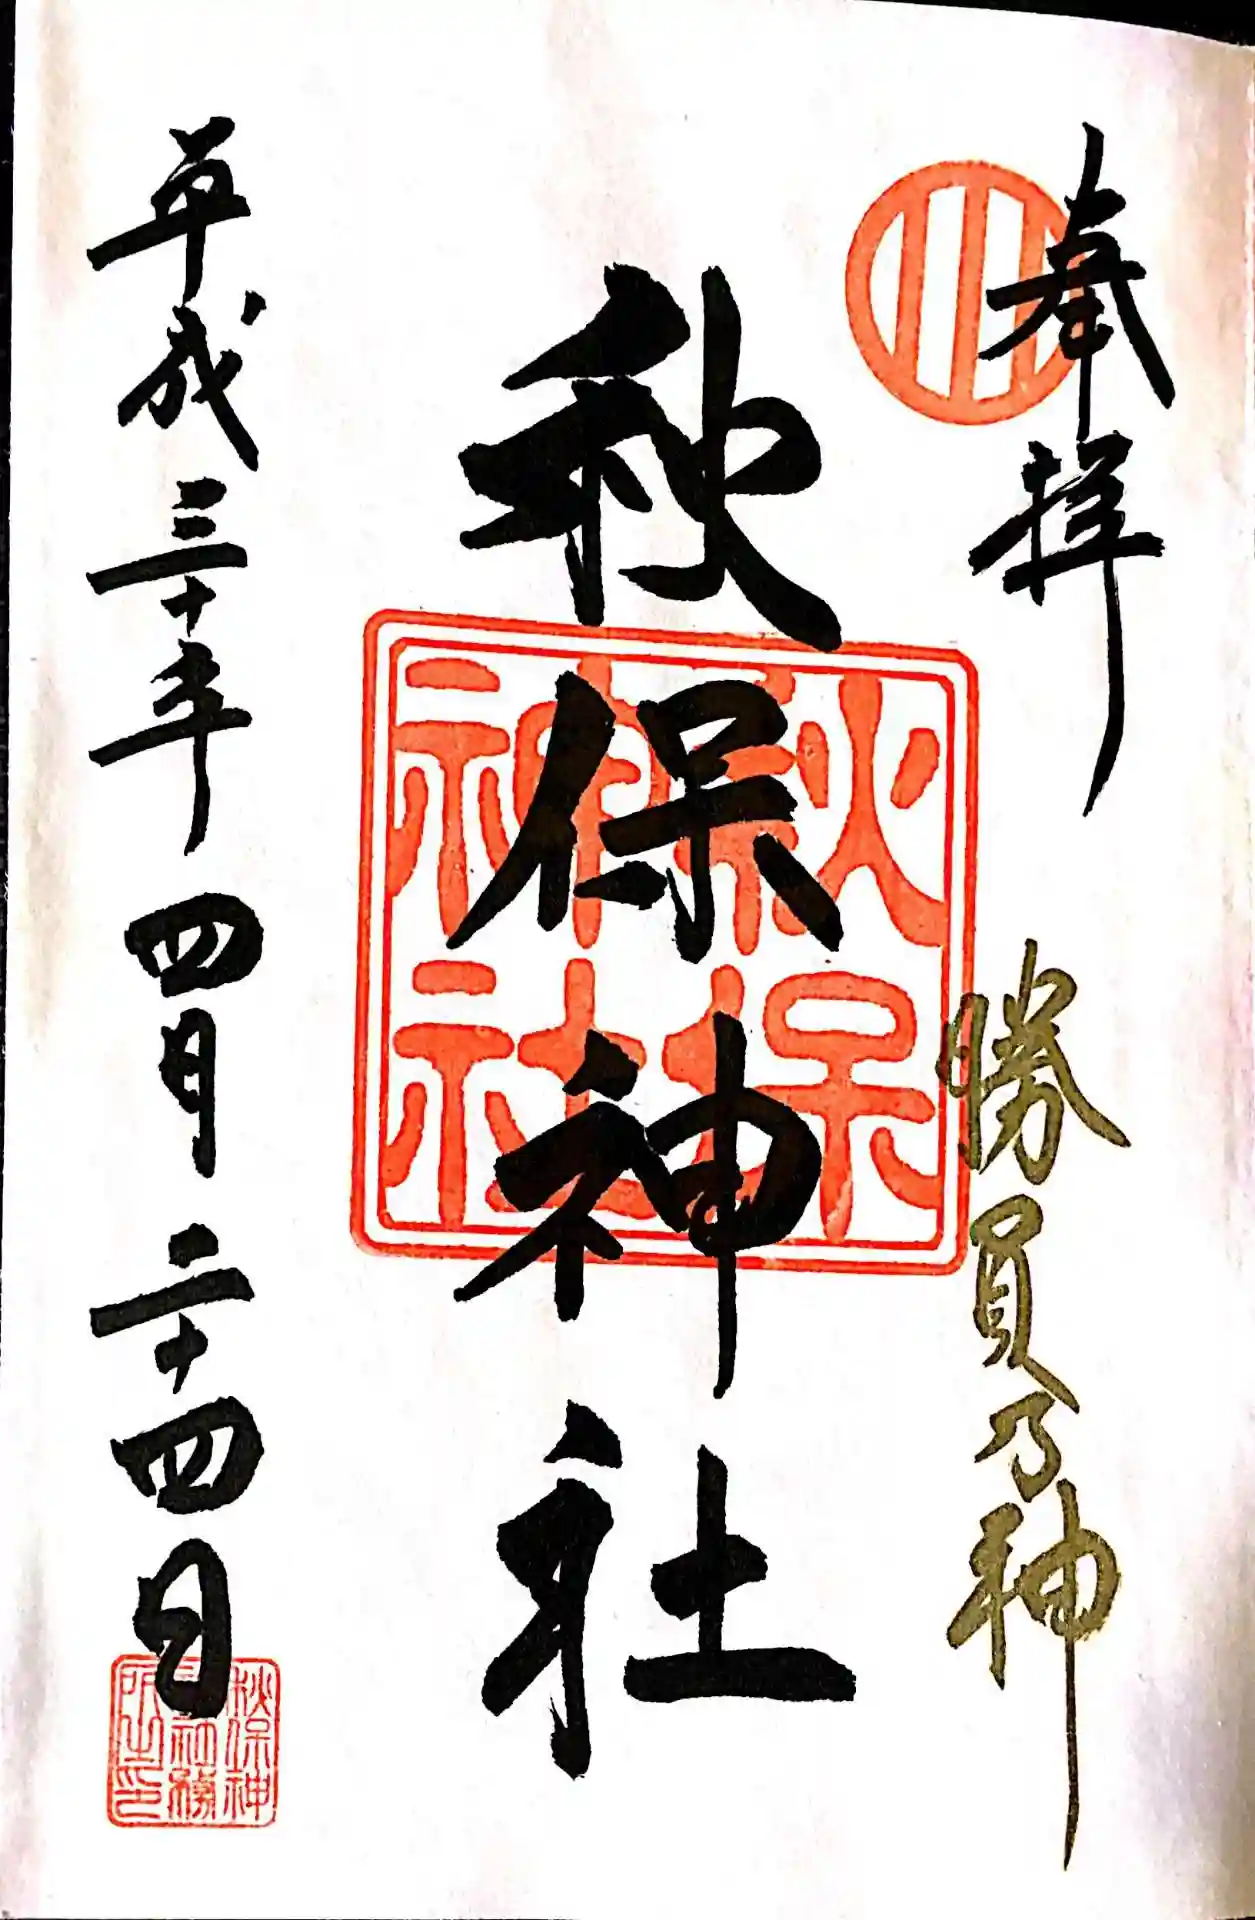 奉拝
勝負乃神
秋保神社
秋保
神社
平成三十年四月二十四日
秋保神
社社務
所之印